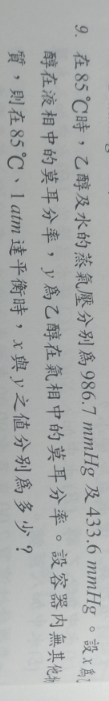 9. 在85℃時，乙醇及水的蒸氣壓分別為986.7 mmHg 及 433.6 mmHg。設x為
醇在液相中的莫耳分率，y為乙醇在氣相中的莫耳分率。設容器內無其他
質，則在85℃、1 atm達平衡時，x與y之值分別為多少？